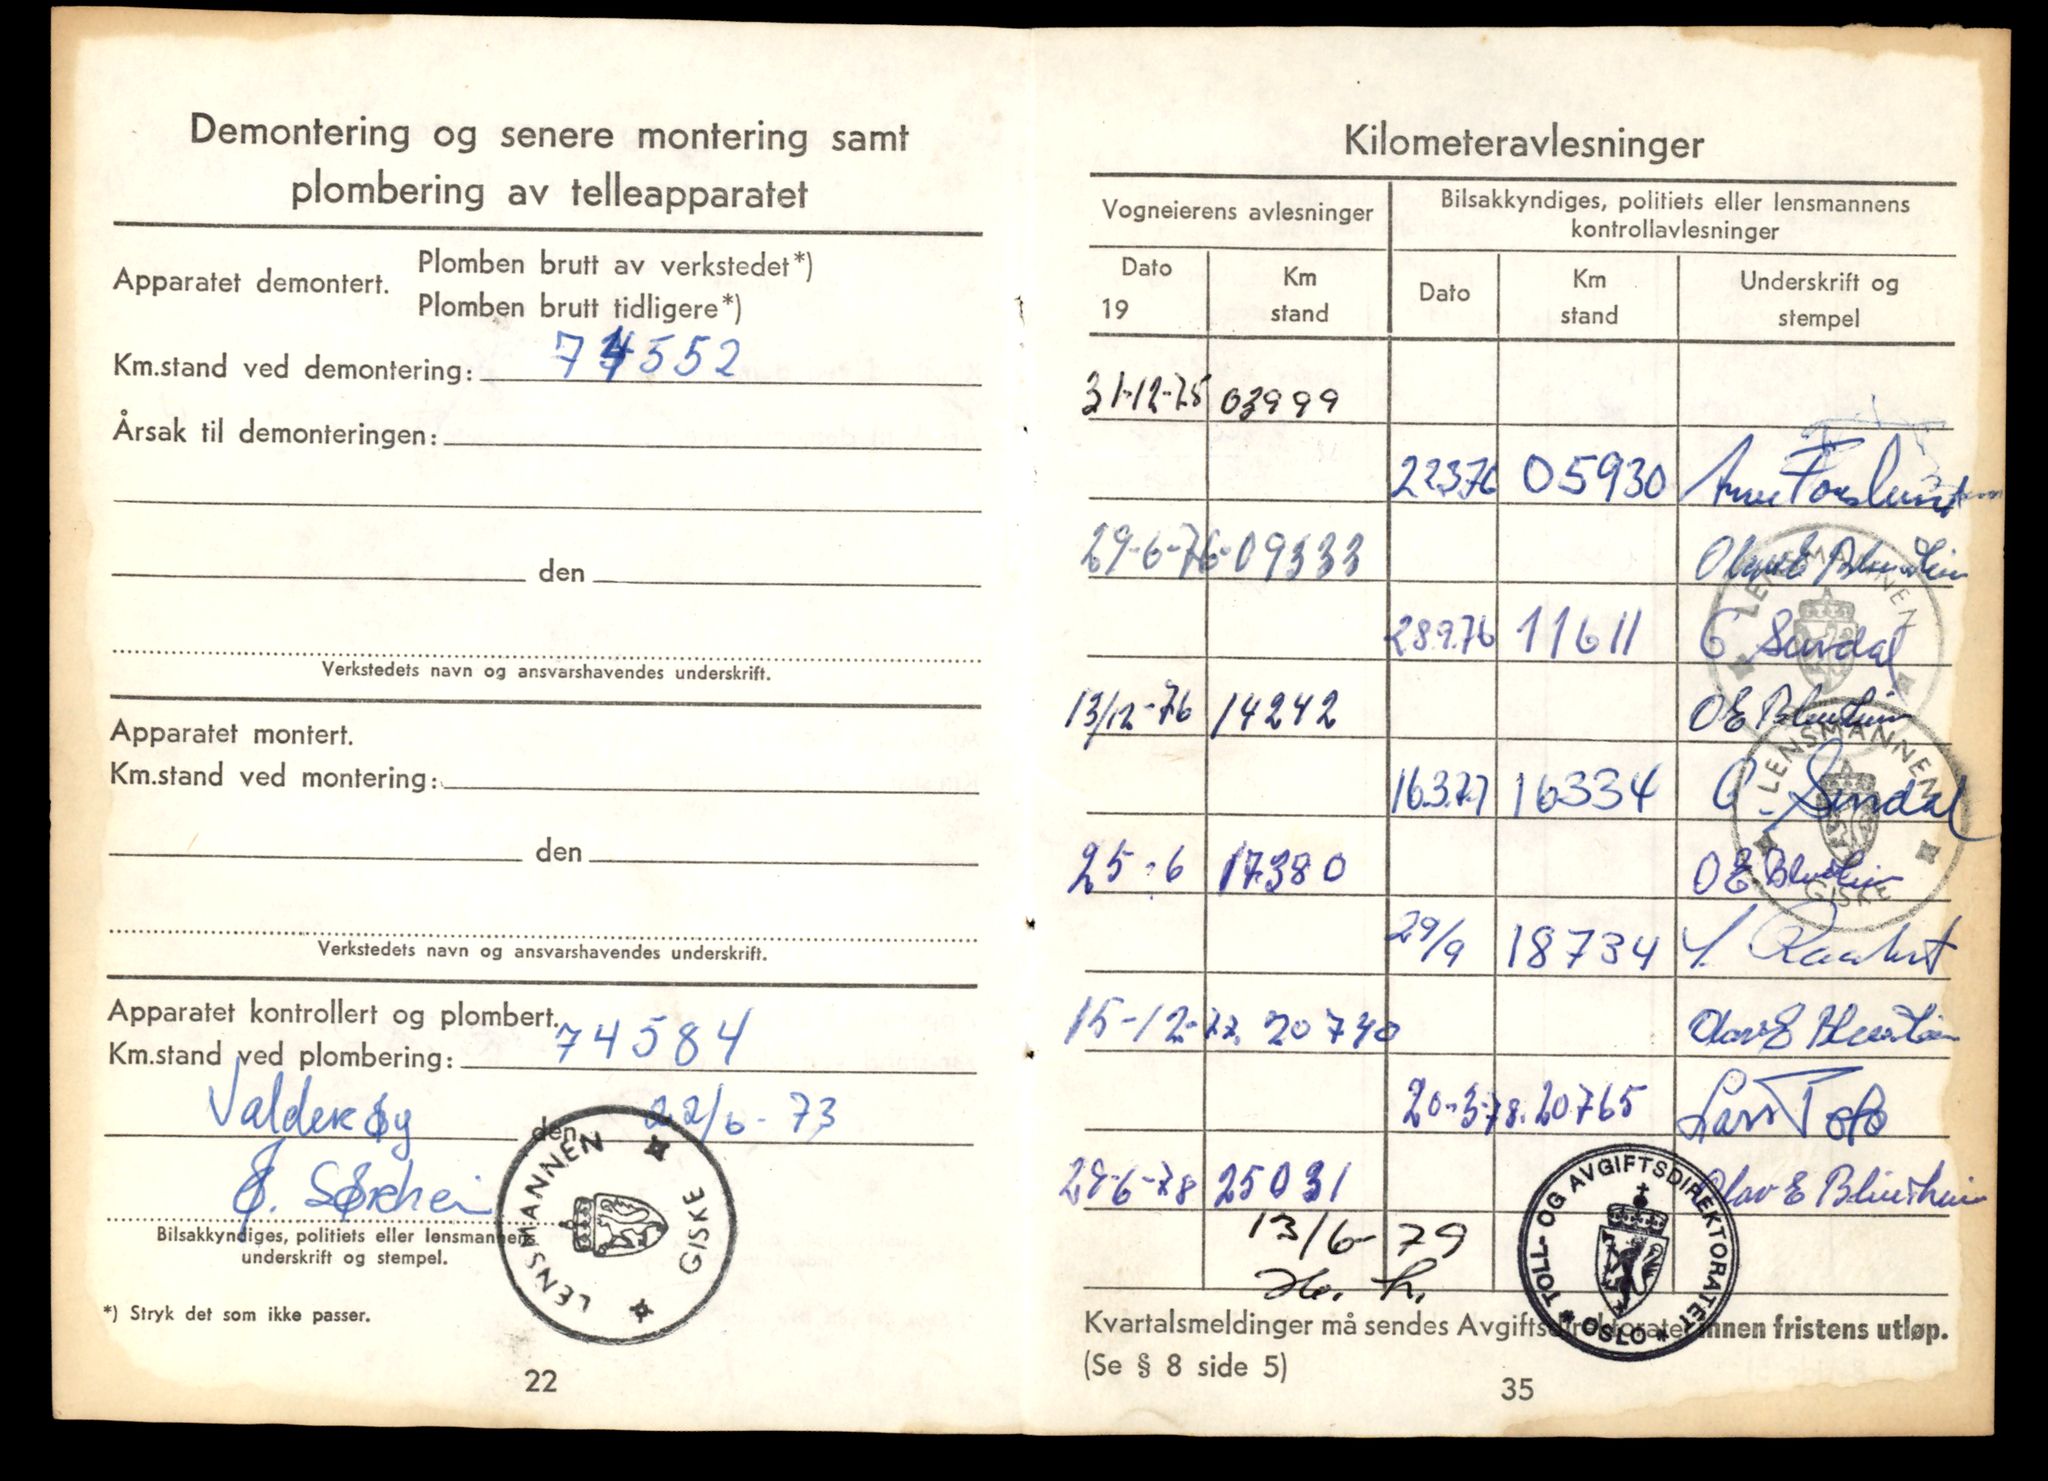 Demontering og senere montering samt
plombering av telleapparatet
Apparatet demontert.
Plomben brutt av verkstedet*)
Plomben brutt tidligere*)
Km.stand ved demontering: 74552
Årsak til demonteringen:
den
Verkstedets navn og ansvarshavendes underskrift.
Apparatet montert.
Km.stand ved montering:
den
Verkstedets navn og ansvarshavendes underskrift.
Apparatet kontrollert og plombert.
Km.stand ved plombering: 74584
Valderøy den 22/6-73
Ø. Sørhei
Bilsakkyndiges, politiets eller lensmannens
underskrift og stempel.
LENSMANNEN GISKE
*) Stryk det som ikke passer.
22
Kilometeravlesninger
Vogneierens avlesninger
Bilsakkyndiges, politiets eller lensmannens
kontrollavlesninger
Dato
19
Km
stand
Dato
Km
stand
Underskrift og
stempel
31-12-75 03999
22376 05930 Arne Forslund
29-6-76 09333
28.9.76 11611 Sundal
LENSMANNEN
13/12-76 14242 O E Blindheim
16.3.77 16334 Sundal
LENSMANNEN GISKE
25-6 17380 O E Blindheim
29/9 18734
15-12-77. 20740 Olav E Blindheim
20-3-78. 20765 Lars
28-6-78 25031 Olav E Blindheim
13/6-79
TOLL- OG AVGIFTSDIREKTORATET OSLO
Kvartalsmeldinger må sendes Avgiftsdirektoratet innen fristens utløp.
(Se § 8 side 5)
35